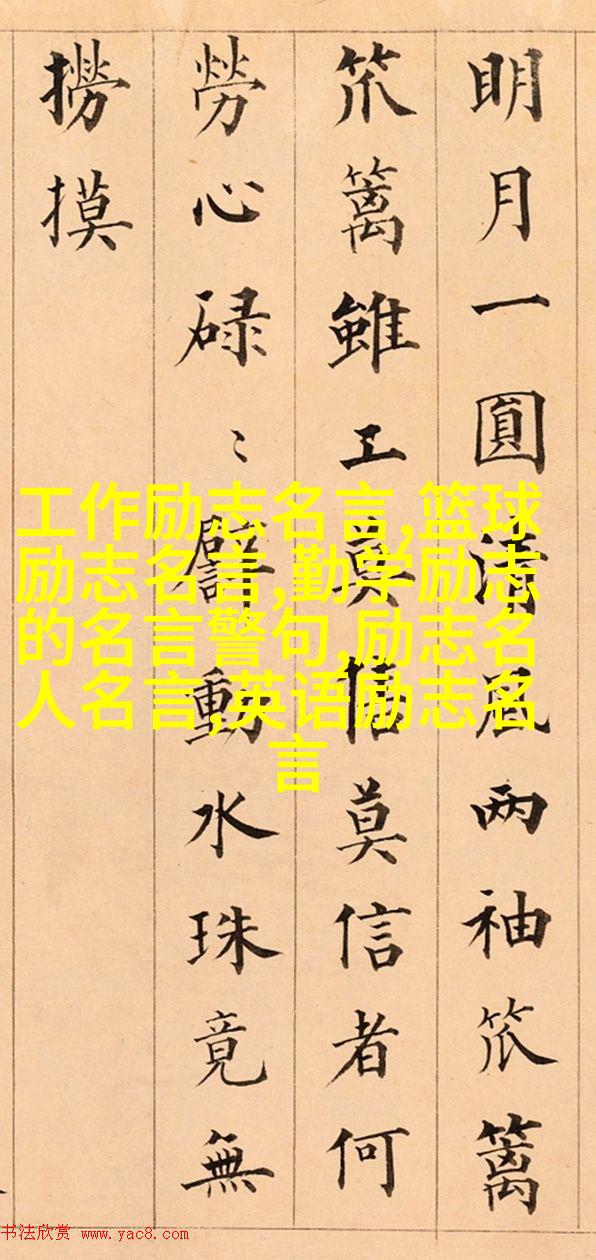 明月一圓清風两袖笊篱
笊篱雖工莫信莫信者何
勞心碌〻譬動水珠竟無
撈摸
工作励志名言,篮球
励志名言,勤学励志
的名言警句,励志名
人名言,英语励志名
言
书法欣赏 www.yac8.com